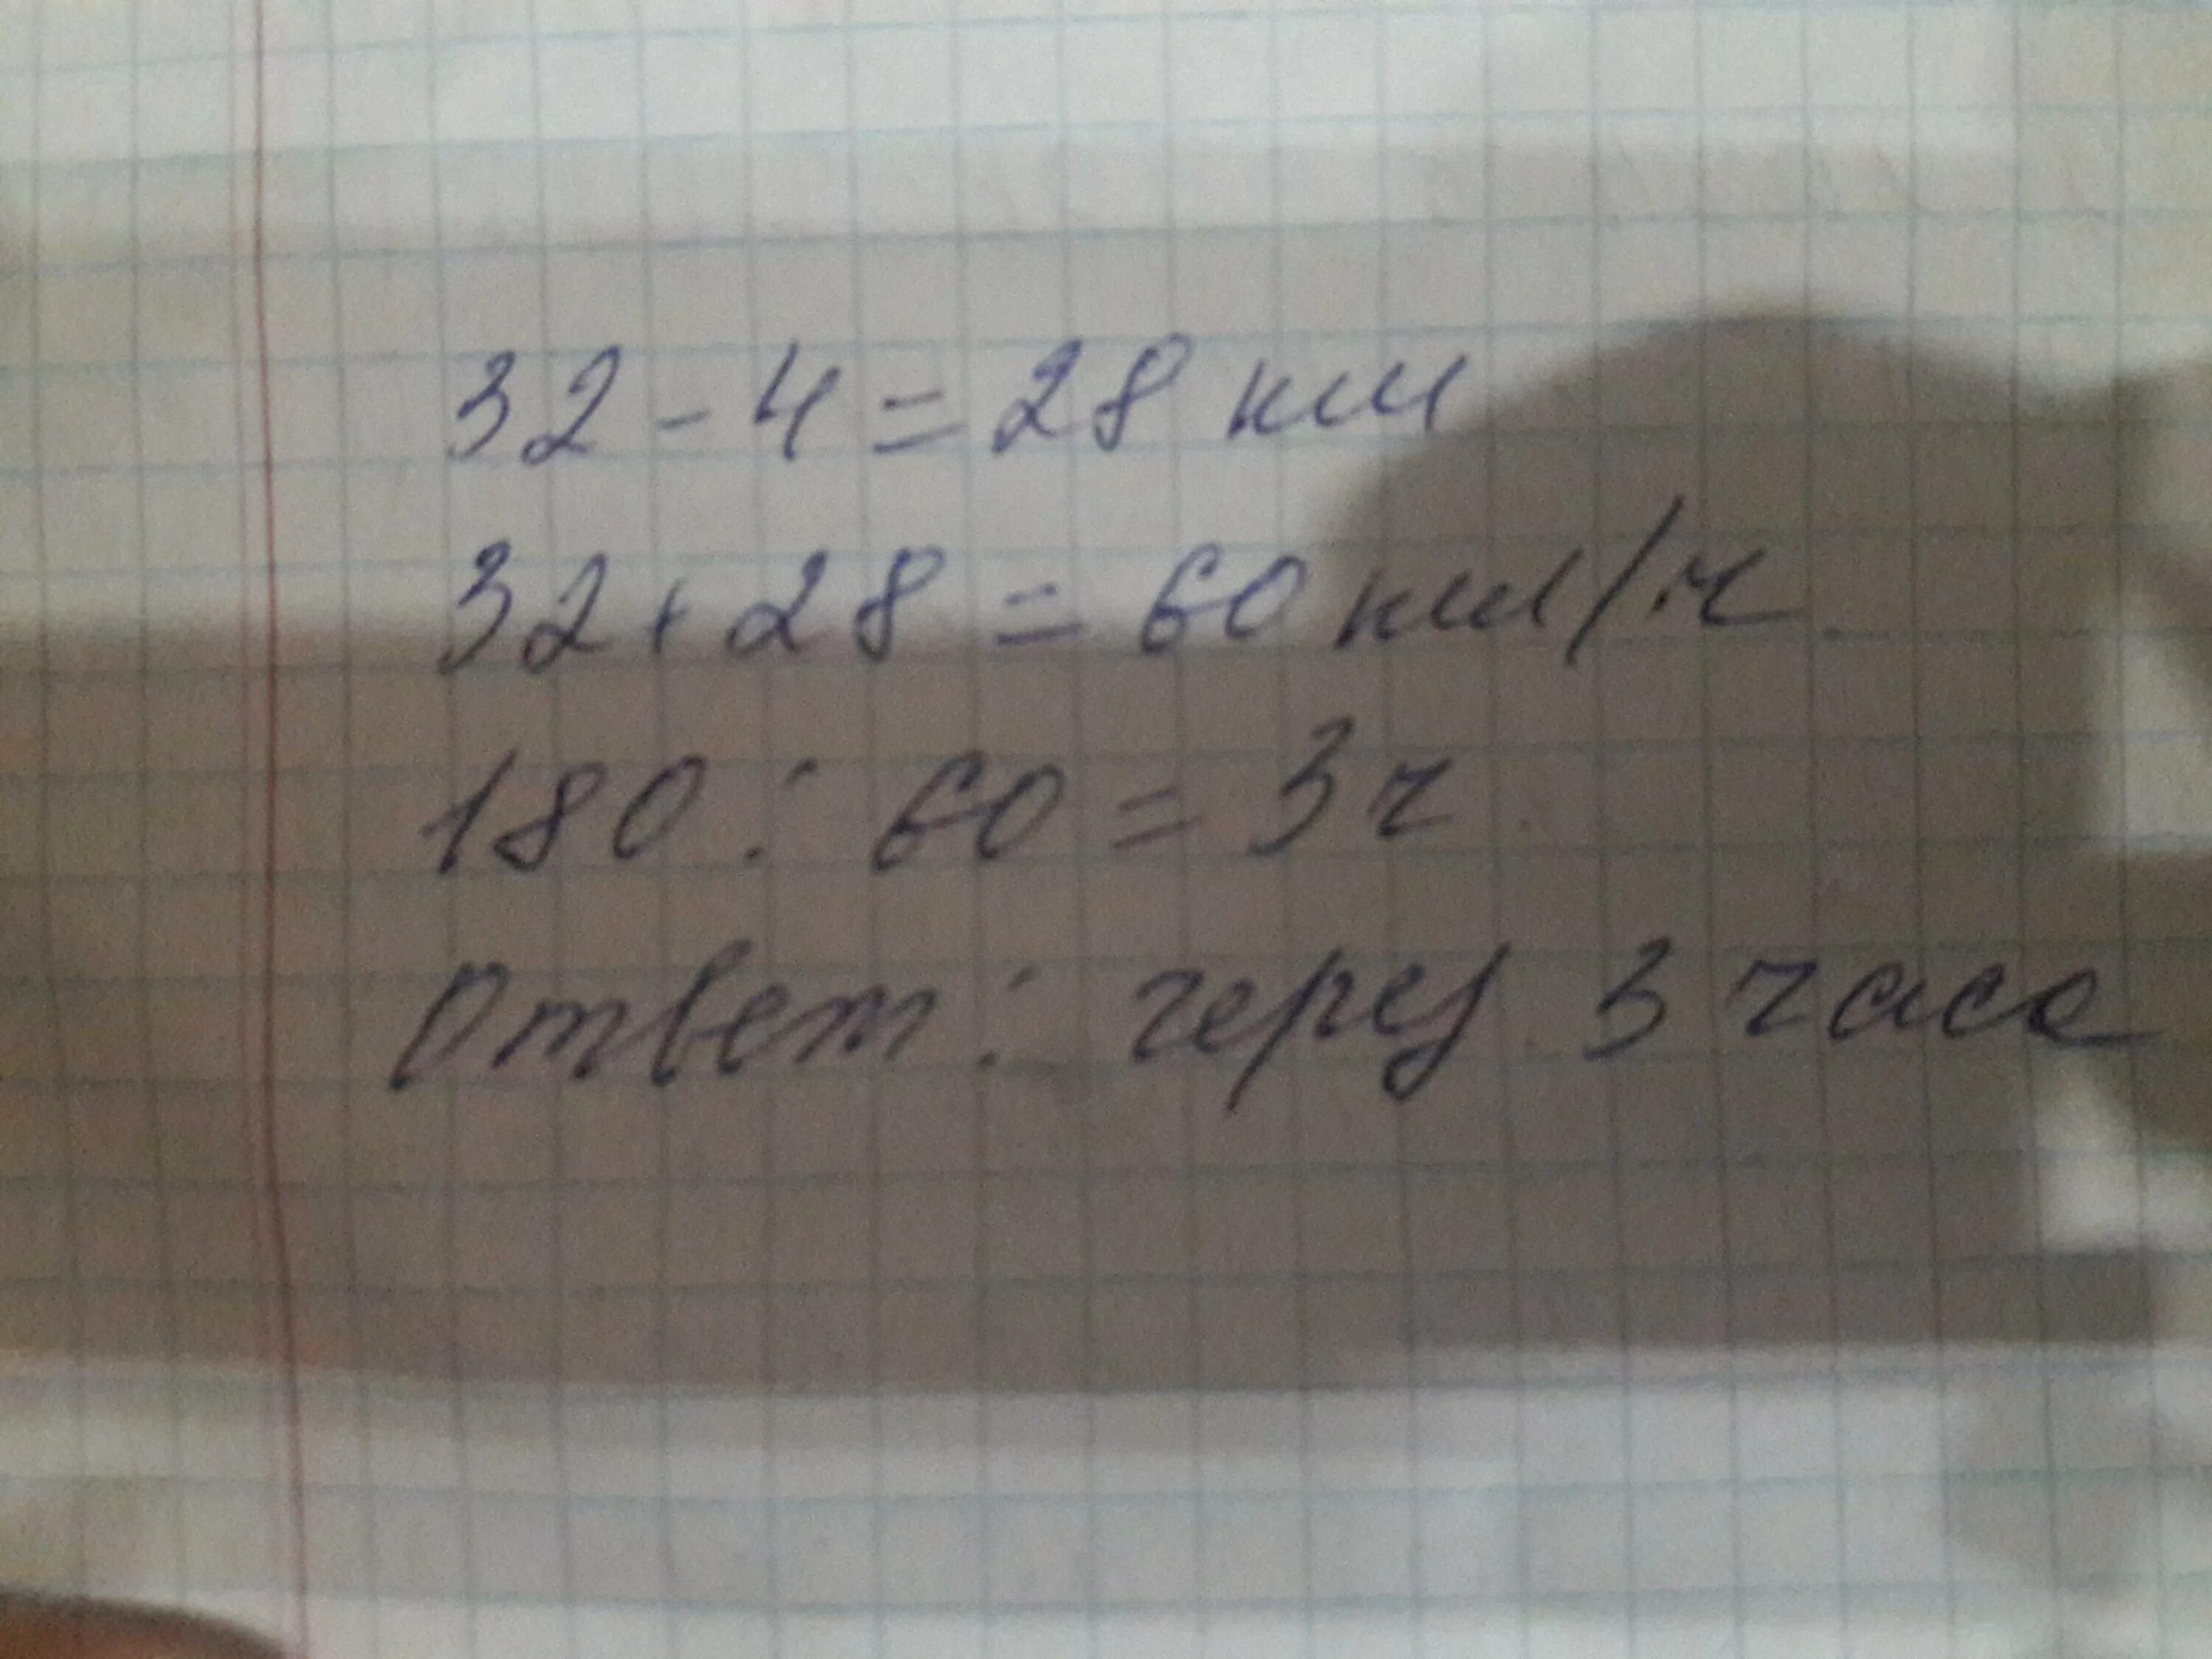 32 - 4 = 28 км
32 + 28 = 60 км/ч
180 : 60 = 3 ч
Ответ: через 3 часа